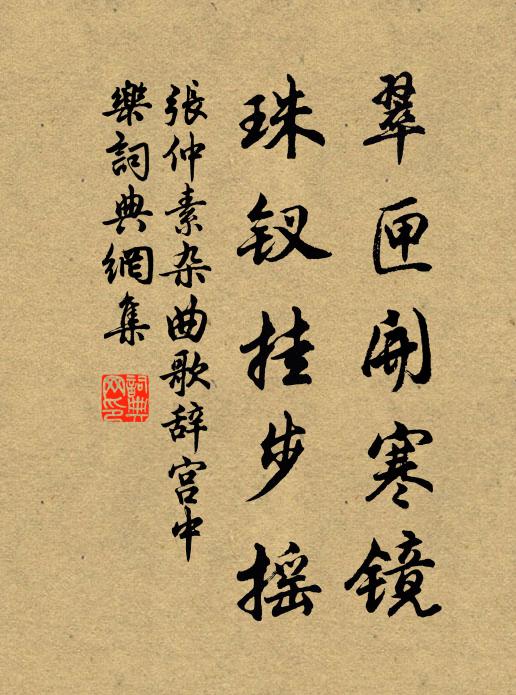 翠匣開寒镜
珠钗挂步摇
張仲素杂曲歌辞宫中
樂詞典網集
詞典网印